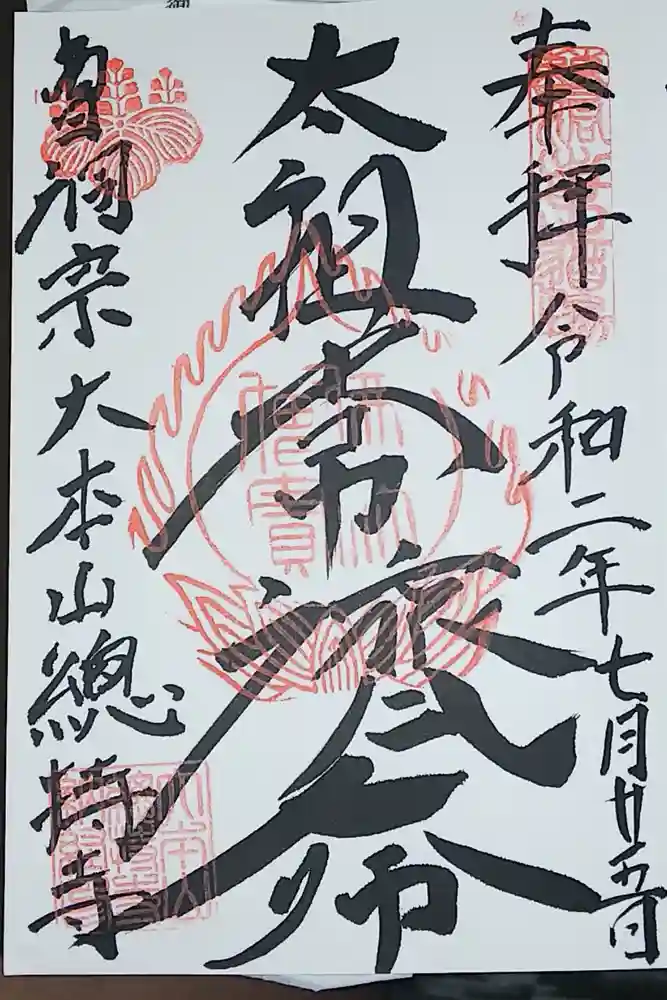 奉拝 令和二年七月廿五日
太祖常濟大師
曹洞宗大本山總持寺
佛法
僧寶